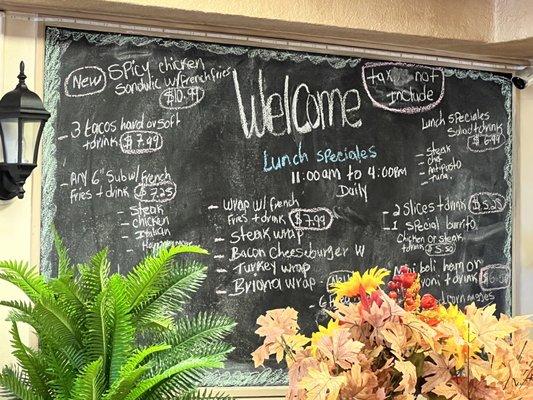 New
Spicy chicken
Sandwich w/french fries
$10.99
3 tacos hard or soft
+ drink $7.99
Any 6" Sub w/french
fries + drink $7.25
- steak
- chicken
- Italian
Welcome
Lunch speciales
11:00am to 4:00pm
Daily
- Wrap w/ french
fries + drink $7.99
- Steak wrap
- Bacon Cheeseburger W
- Turkey wrap
wrap
tax not
include
Lunch speciales
Salad + drink
$6.99
- steak
- chef
- Antipasto
- tuna
2 slices + drink $5.25
1 special burrito
chicken or steak
$5.50
boli ham or